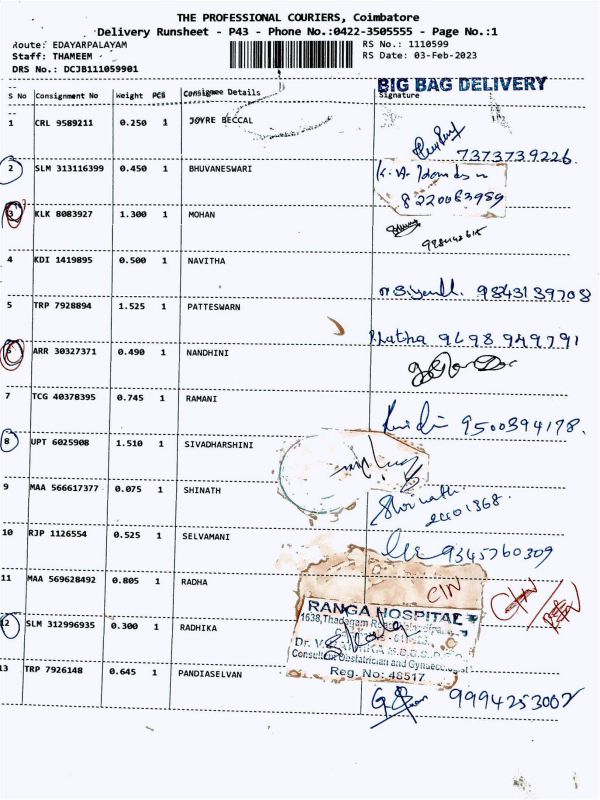 THE PROFESSIONAL COURIERS, Coimbatore
Delivery Runsheet - P43 - Phone No.:0422-3505555 - Page No.:1
Route: EDAYARPALAYAM RS No.: 1110599
Staff: THAMEEM RS Date: 03-Feb-2023
DRS No.: DCJB111059901
BIG BAG DELIVERY
S No Consignment No Weight PCS Consignee Details Signature
1 CRL 9589211 0.250 1 JOYRE BECCAL
7373739226
2 SLM 313116399 0.450 1 BHUVANESWARI
8220063959
3 KLK 8083927 1.300 1 MOHAN
4 KDI 1419895 0.500 1 NAVITHA
9843139708
5 TRP 7928894 1.525 1 PATTESWARN
9698 949791
6 ARR 30327371 0.490 1 NANDHINI
7 TCG 40378395 0.745 1 RAMANI
9500394178.
8 UPT 6025908 1.510 1 SIVADHARSHINI
9 MAA 566617377 0.075 1 SHINATH
Shrinath
10 RJP 1126554 0.525 1 SELVAMANI
9345760309
11 MAA 569628492 0.805 1 RADHA
CIN
RANGA HOSPITAL
1638, Thadagam Road
12 SLM 312996935 0.300 1 RADHIKA
Consultant Obstetrician and Gynaecologist
Reg. No: 48517
13 TRP 7926148 0.645 1 PANDIASELVAN
9994253002